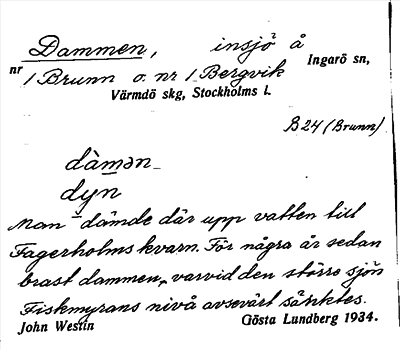 Dammen, insjö å Ingarö sn,
nr 1 Brunn o. nr 1 Bergvik
Värmdö skg, Stockholms l.
B24 (Brunn)
dàmən
dyn
Man dämde där upp vatten till
Fagerholms kvarn. För några år sedan
brast dammen, varvid den större sjön
Fiskmyrans nivå avsevärt sänktes.
John Westin Gösta Lundberg 1934.